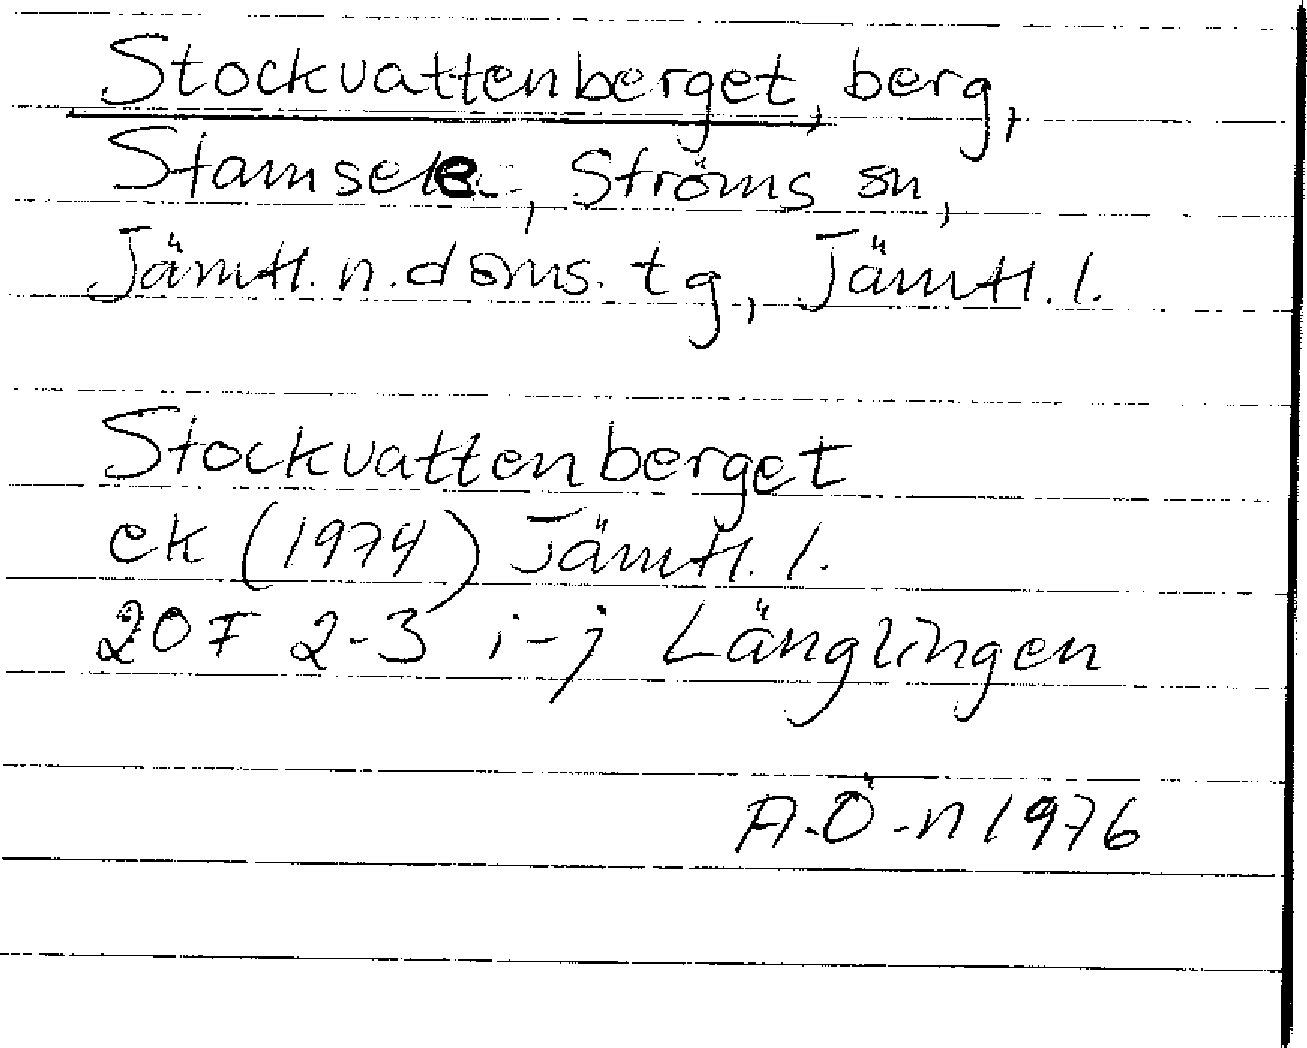 Stockvattenberget, berg,
Stamsele, Ströms sn,
Jämtl. n. doms. tg, Jämtl. l.
Stockvattenberget
ek (1974) Jämtl. l.
20F 2-3 i-j Länglingen
A.Ö-n 1976